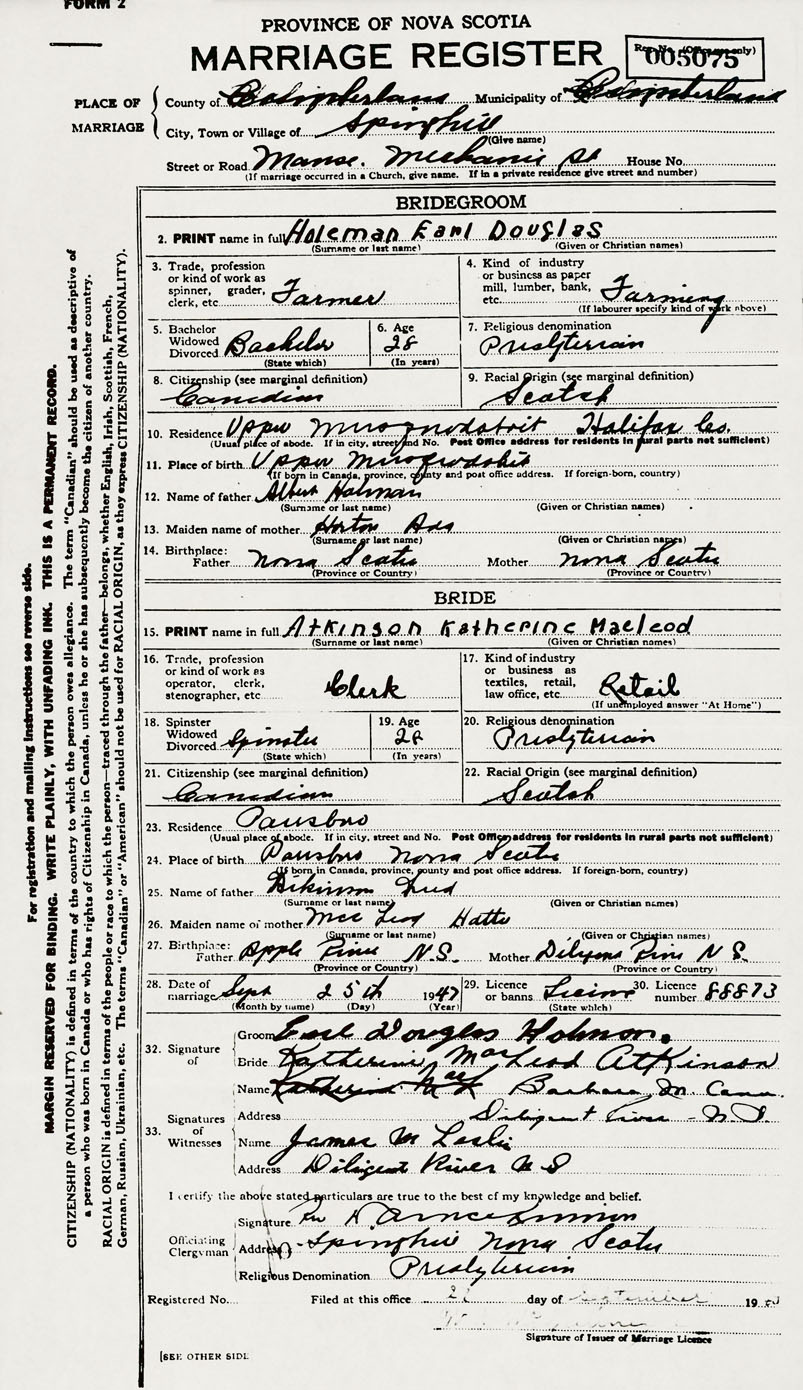 FORM 2
PROVINCE OF NOVA SCOTIA
MARRIAGE REGISTER
Reg. No. (Office use only)
005075
PLACE OF MARRIAGE
County of Municipality of
City, Town or Village of Springhill
(Give name)
Street or Road Manse. Mechanic St House No.
(If marriage occurred in a Church, give name. If in a private residence give street and number)
BRIDEGROOM
2. PRINT name in full Holeman Earl Douglas
(Surname or last name) (Given or Christian names)
3. Trade, profession or kind of work as spinner, grader, clerk, etc. Farmer
4. Kind of industry or business as paper mill, lumber, bank, etc. Farming
(If labourer specify kind of work above)
5. Bachelor Widowed Divorced Bachelor
(State which)
6. Age 28
(In years)
7. Religious denomination
Presbyterian
8. Citizenship (see marginal definition)
Canadian
9. Racial Origin (see marginal definition)
Scotch
10. Residence Upper Halifax Co.
(Usual place of abode. If in city, street and No. Post Office address for residents in rural parts not sufficient)
11. Place of birth Upper
(If born in Canada, province, county and post office address. If foreign-born, country)
12. Name of father Albert Holman
(Surname or last name) (Given or Christian names)
13. Maiden name of mother Horton Ada
(Surname or last name) (Given or Christian names)
14. Birthplace:
Father Nova Scotia Mother Nova Scotia
(Province or Country) (Province or Country)
BRIDE
15. PRINT name in full Atkinson Katherine Macleod
(Surname or last name) (Given or Christian names)
16. Trade, profession or kind of work as operator, clerk, stenographer, etc Clerk
17. Kind of industry or business as textiles, retail, law office, etc. Retail
(If unemployed answer "At Home")
18. Spinster Widowed Divorced Spinster
(State which)
19. Age 28
(In years)
20. Religious denomination
Presbyterian
21. Citizenship (see marginal definition)
Canadian
22. Racial Origin (see marginal definition)
Scotch
23. Residence Parrsboro
(Usual place of abode. If in city, street and No. Post Office address for residents in rural parts not sufficient)
24. Place of birth Parrsboro Nova Scotia
(If born in Canada, province, county and post office address. If foreign-born, country)
25. Name of father Atkinson
(Surname or last name) (Given or Christian names)
26. Maiden name of mother Hattie
(Surname or last name) (Given or Christian names)
27. Birthplace:
Father Apple River N.S. Mother River N S.
(Province or Country) (Province or Country)
28. Date of marriage Sept 25th 1947
(Month by name) (Day) (Year)
29. Licence or banns
(State which)
30. Licence number 88873
32. Signature of
Groom Earl Douglas Holman.
Bride Katherine MacLeod Atkinson
33. Signatures of Witnesses
Name Barbara M.
Address Diligent River - N.S.
Name James M Leslie
Address Diligent River N S
I certify the above stated particulars are true to the best of my knowledge and belief.
Officiating Clergyman
Signature
Address Springhill Nova Scotia
Religious Denomination Presbyterian
Registered No. Filed at this office day of September 19
Signature of Issuer of Marriage Licence
[SEE OTHER SIDE
For registration and mailing instructions see reverse side.
MARGIN RESERVED FOR BINDING. WRITE PLAINLY, WITH UNFADING INK. THIS IS A PERMANENT RECORD.
CITIZENSHIP (NATIONALITY) is defined in terms of the country to which the person owes allegiance. The term "Canadian" should be used as descriptive of
a person who was born in Canada or who has rights of Citizenship in Canada, unless he or she has subsequently become the citizen of another country.
RACIAL ORIGIN is defined in terms of the people or race to which the person—traced through the father—belongs, whether English, Irish, Scottish, French,
German, Russian, Ukrainian, etc. The terms "Canadian" or "American" should not be used for RACIAL ORIGIN, as they express CITIZENSHIP (NATIONALITY).